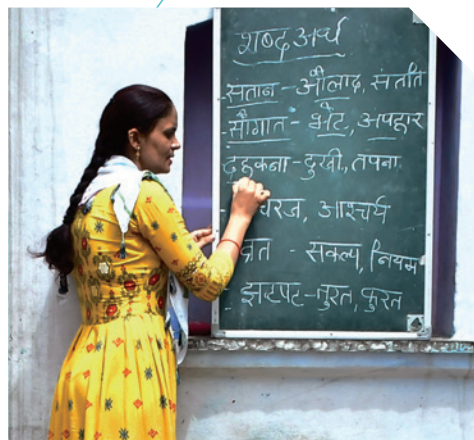 शब्द अर्थ
- संतान - औलाद, संतति
- सौगात - भेंट, अपहार
दहकना - दुखी, तपना
- चरज, आश्चर्य
व्रत - सकल्प, नियम
- झटपट - तुरत, फुरत